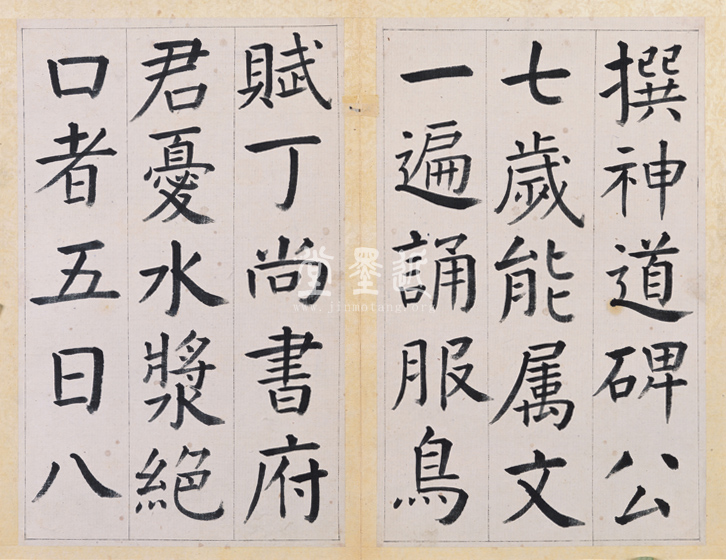 撰神道碑公
七歲能属文
一遍誦服鳥
賦丁尚書府
君憂水漿絕
口者五日八
www.jinmotang.org